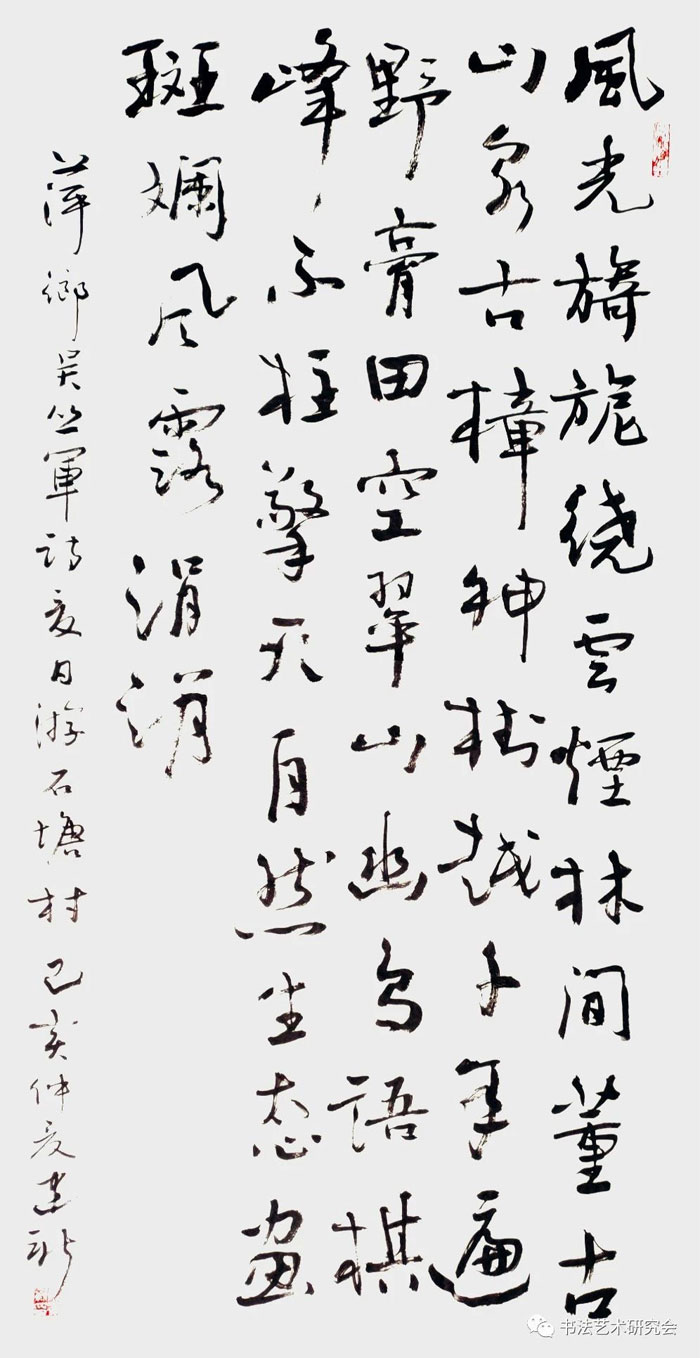 風光旖旎绕雲煙林间董古
山泉古樟神树越千年遍
野膏田空翠山幽鸟語棋
峰柱擎天自然生态畫
斑斓风露涓涓
萍鄉吴軍诗夏日游石塘村己亥仲夏建新
书法艺术研究会